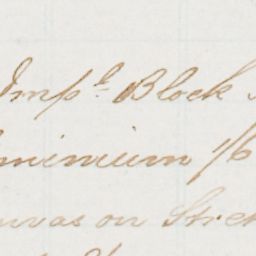 Imp^l Block
minium 1/6
nvas on Stre